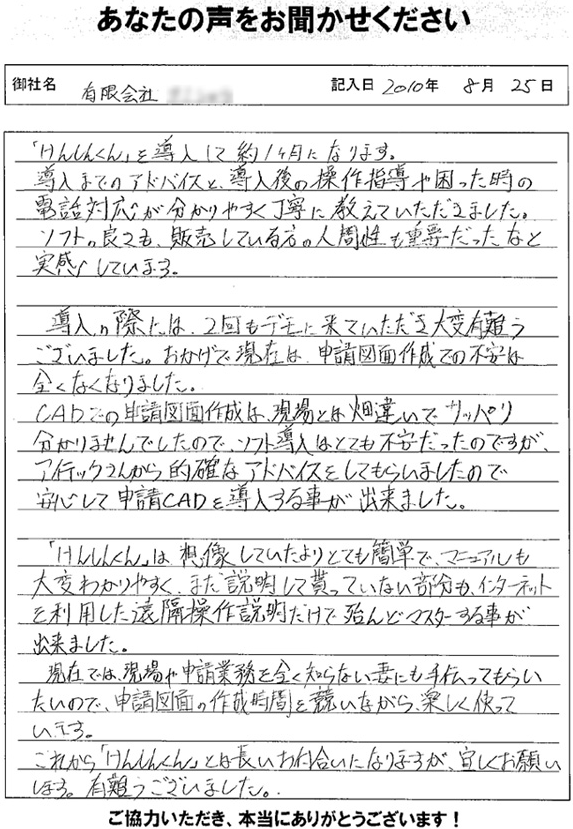 あなたの声をお聞かせください
御社名 有限会社 記入日 2010年 8月 25日
「けんしんくん」を導入して約1ヶ月になります。
導入までのアドバイスと、導入後の操作指導や困った時の
電話対応が分かりやすく丁寧に教えていただきました。
ソフトの良さも、販売している方の人間性も重要だったなと
実感しています。
導入の際には、2回もデモに来ていただき大変有難う
ございました。おかげで現在は、申請図面作成での不安は
全くなくなりました。
CADでの申請図面作成は、現場とは畑違いでサッパリ
分かりませんでしたので、ソフト導入はとても不安だったのですが、
アイテックさんから的確なアドバイスをしてもらいましたので
安心して申請CADを導入する事が出来ました。
「けんしんくん」は想像していたよりとても簡単で、マニュアルも
大変わかりやすく、まだ説明して貰っていない部分も、インターネット
を利用した遠隔操作説明だけで殆んどマスターする事が
出来ました。
現在では、現場や申請業務を全く知らない妻にも手伝ってもらい
たいので、申請図面の作成時間を競いながら、楽しく使って
います。
これから「けんしんくん」とは長いお付合いになりますが、宜しくお願い
します。有難うございました。
ご協力いただき、本当にありがとうございます！